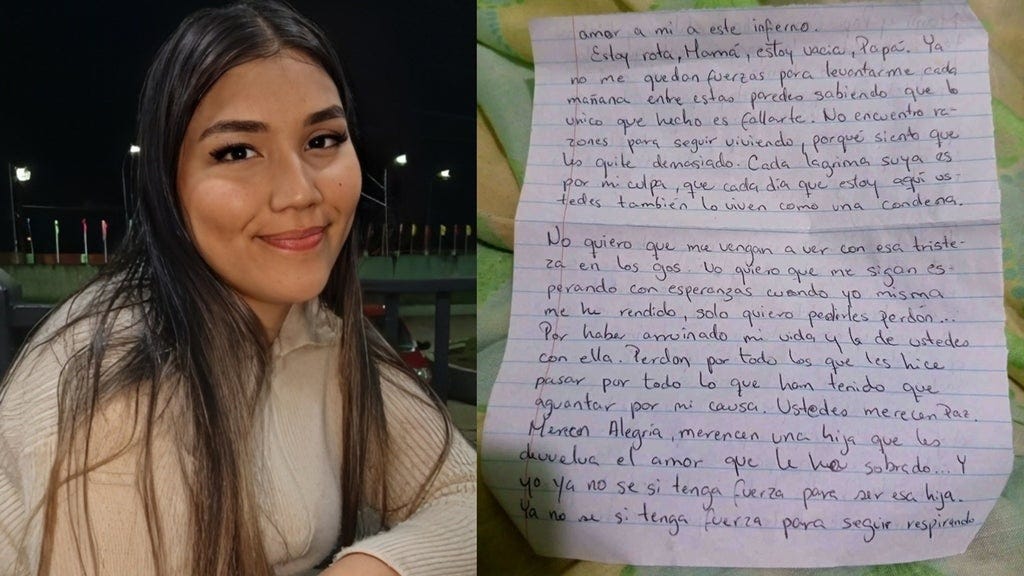 amor a mi a este inferno.
Estoy rota, Mamá, estoy vacia, Papá. Ya
no me quedan fuerzas para levantarme cada
mañana entre estas paredes sabiendo que lo
unico que hecho es fallarte. No encuentro ra-
zones para seguir viviendo, porque siento que
les quite demasiado. Cada lagrima suya es
por mi culpa, que cada dia que estoy aqui us-
tedes también lo viven como una condena.
No quiero que me vengan a ver con esa triste-
za en los ojos. No quiero que me sigan es-
perando con esperanzas cuando yo misma
me he rendido, solo quiero pedirles perdon...
Por haber arruinado mi vida y la de ustedes
con ella. Perdon, por todo los que les hice
pasar por todo lo que han tenido que
aguantar por mi causa. Ustedes merecen Paz.
Merecen Alegria, merencen una hija que les
devuelva el amor que le ha sobrado... Y
yo ya no se si tenga fuerza para ser esa hija.
Ya no se si tenga fuerza para seguir respirando